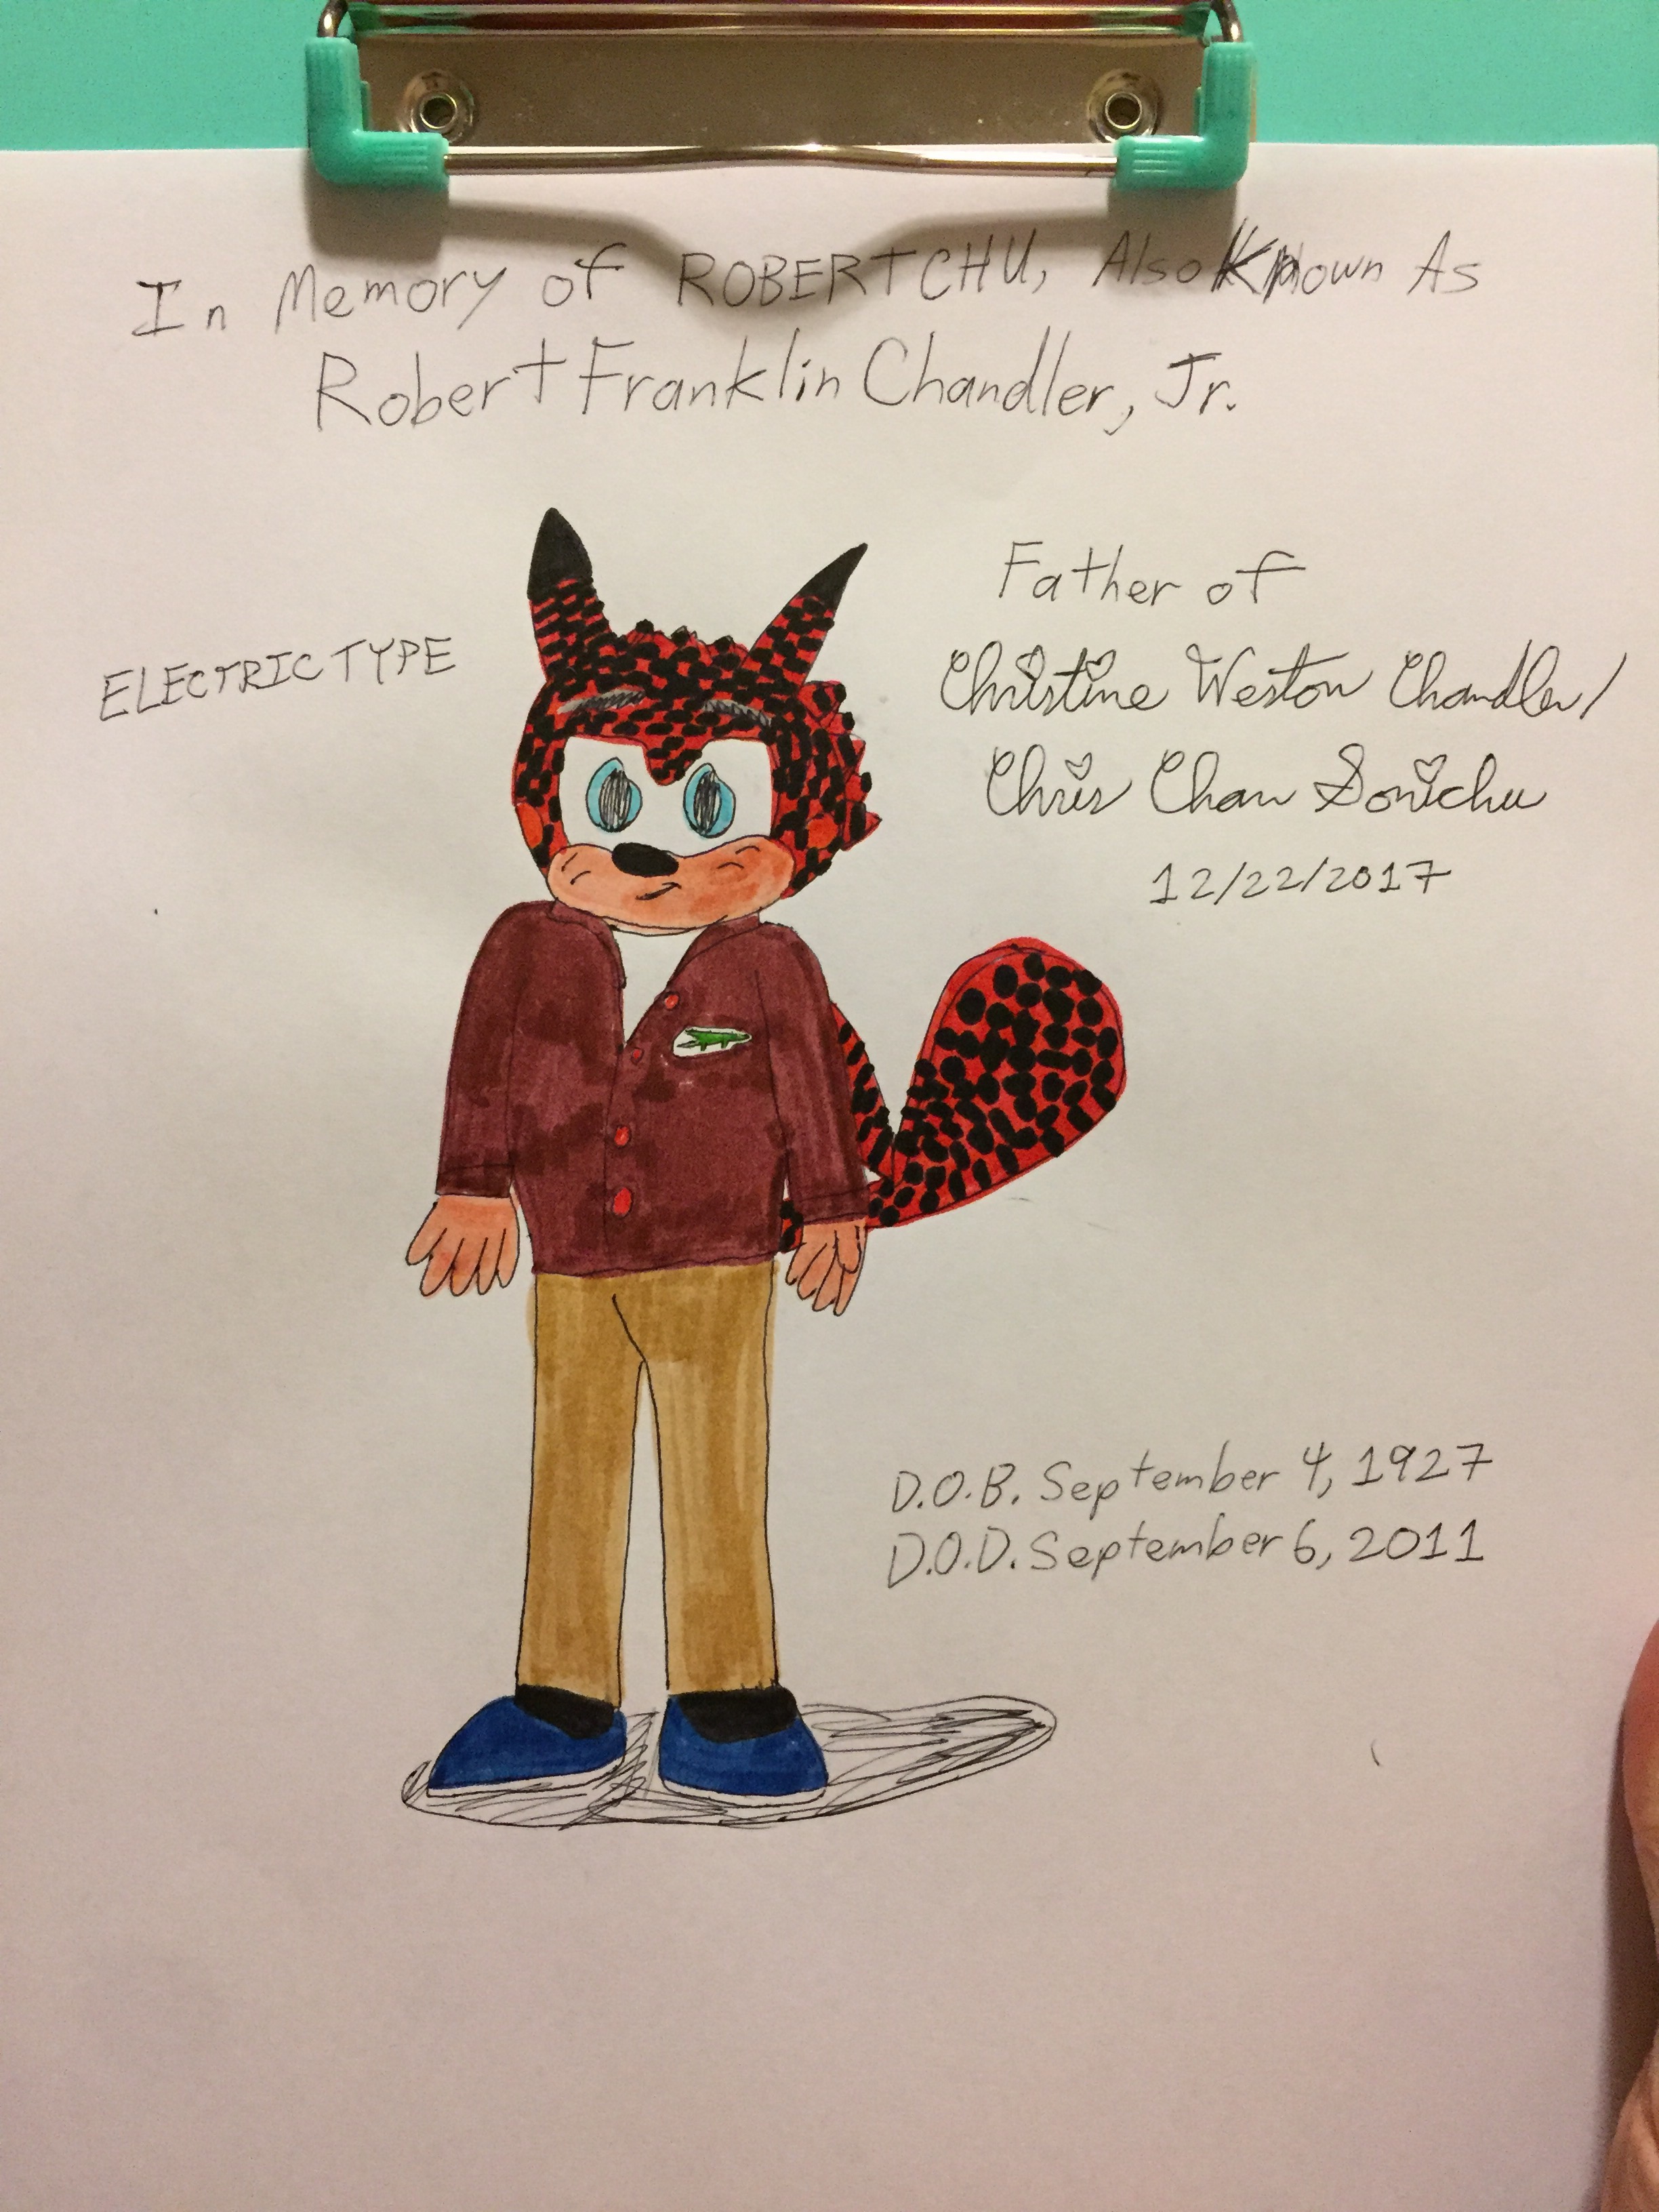 In Memory of ROBERTCHU, Also Known As
Robert Franklin Chandler, Jr.
ELECTRIC TYPE
Father of
Christine Weston Chandler/
Chris Chan Sonichu
12/22/2017
D.O.B. September 4, 1927
D.O.D. September 6, 2011